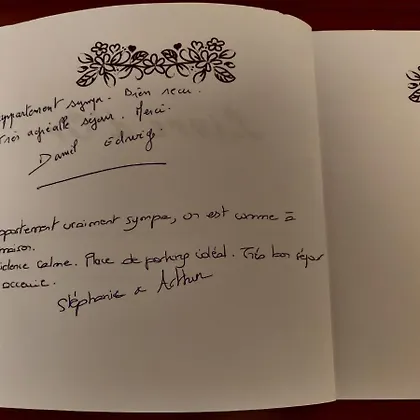 appartement sympa. Bien reçu.
Très agréable séjour. Merci.
Daniel Edwige
appartement vraiment sympa, on est comme à
maison.
calme. Place de parking idéal. Très bon séjour
Stéphanie & Arthur